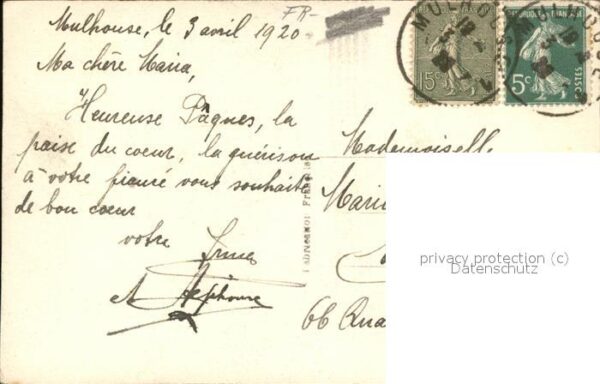 FR-
Mulhouse, le 3 avril 1920
Ma chère Maria,
Heureuse Pâques, la
paise du coeur, la guérison
à votre fiancé vous souhaite
de bon coeur
votre Irma
et Alphonse
MULHOUSE
MULHOUSE
15c
5c
POSTES
Mademoiselle
Maria
66 Qua
FABRICATION FRANÇAISE
privacy protection (c)
Datenschutz